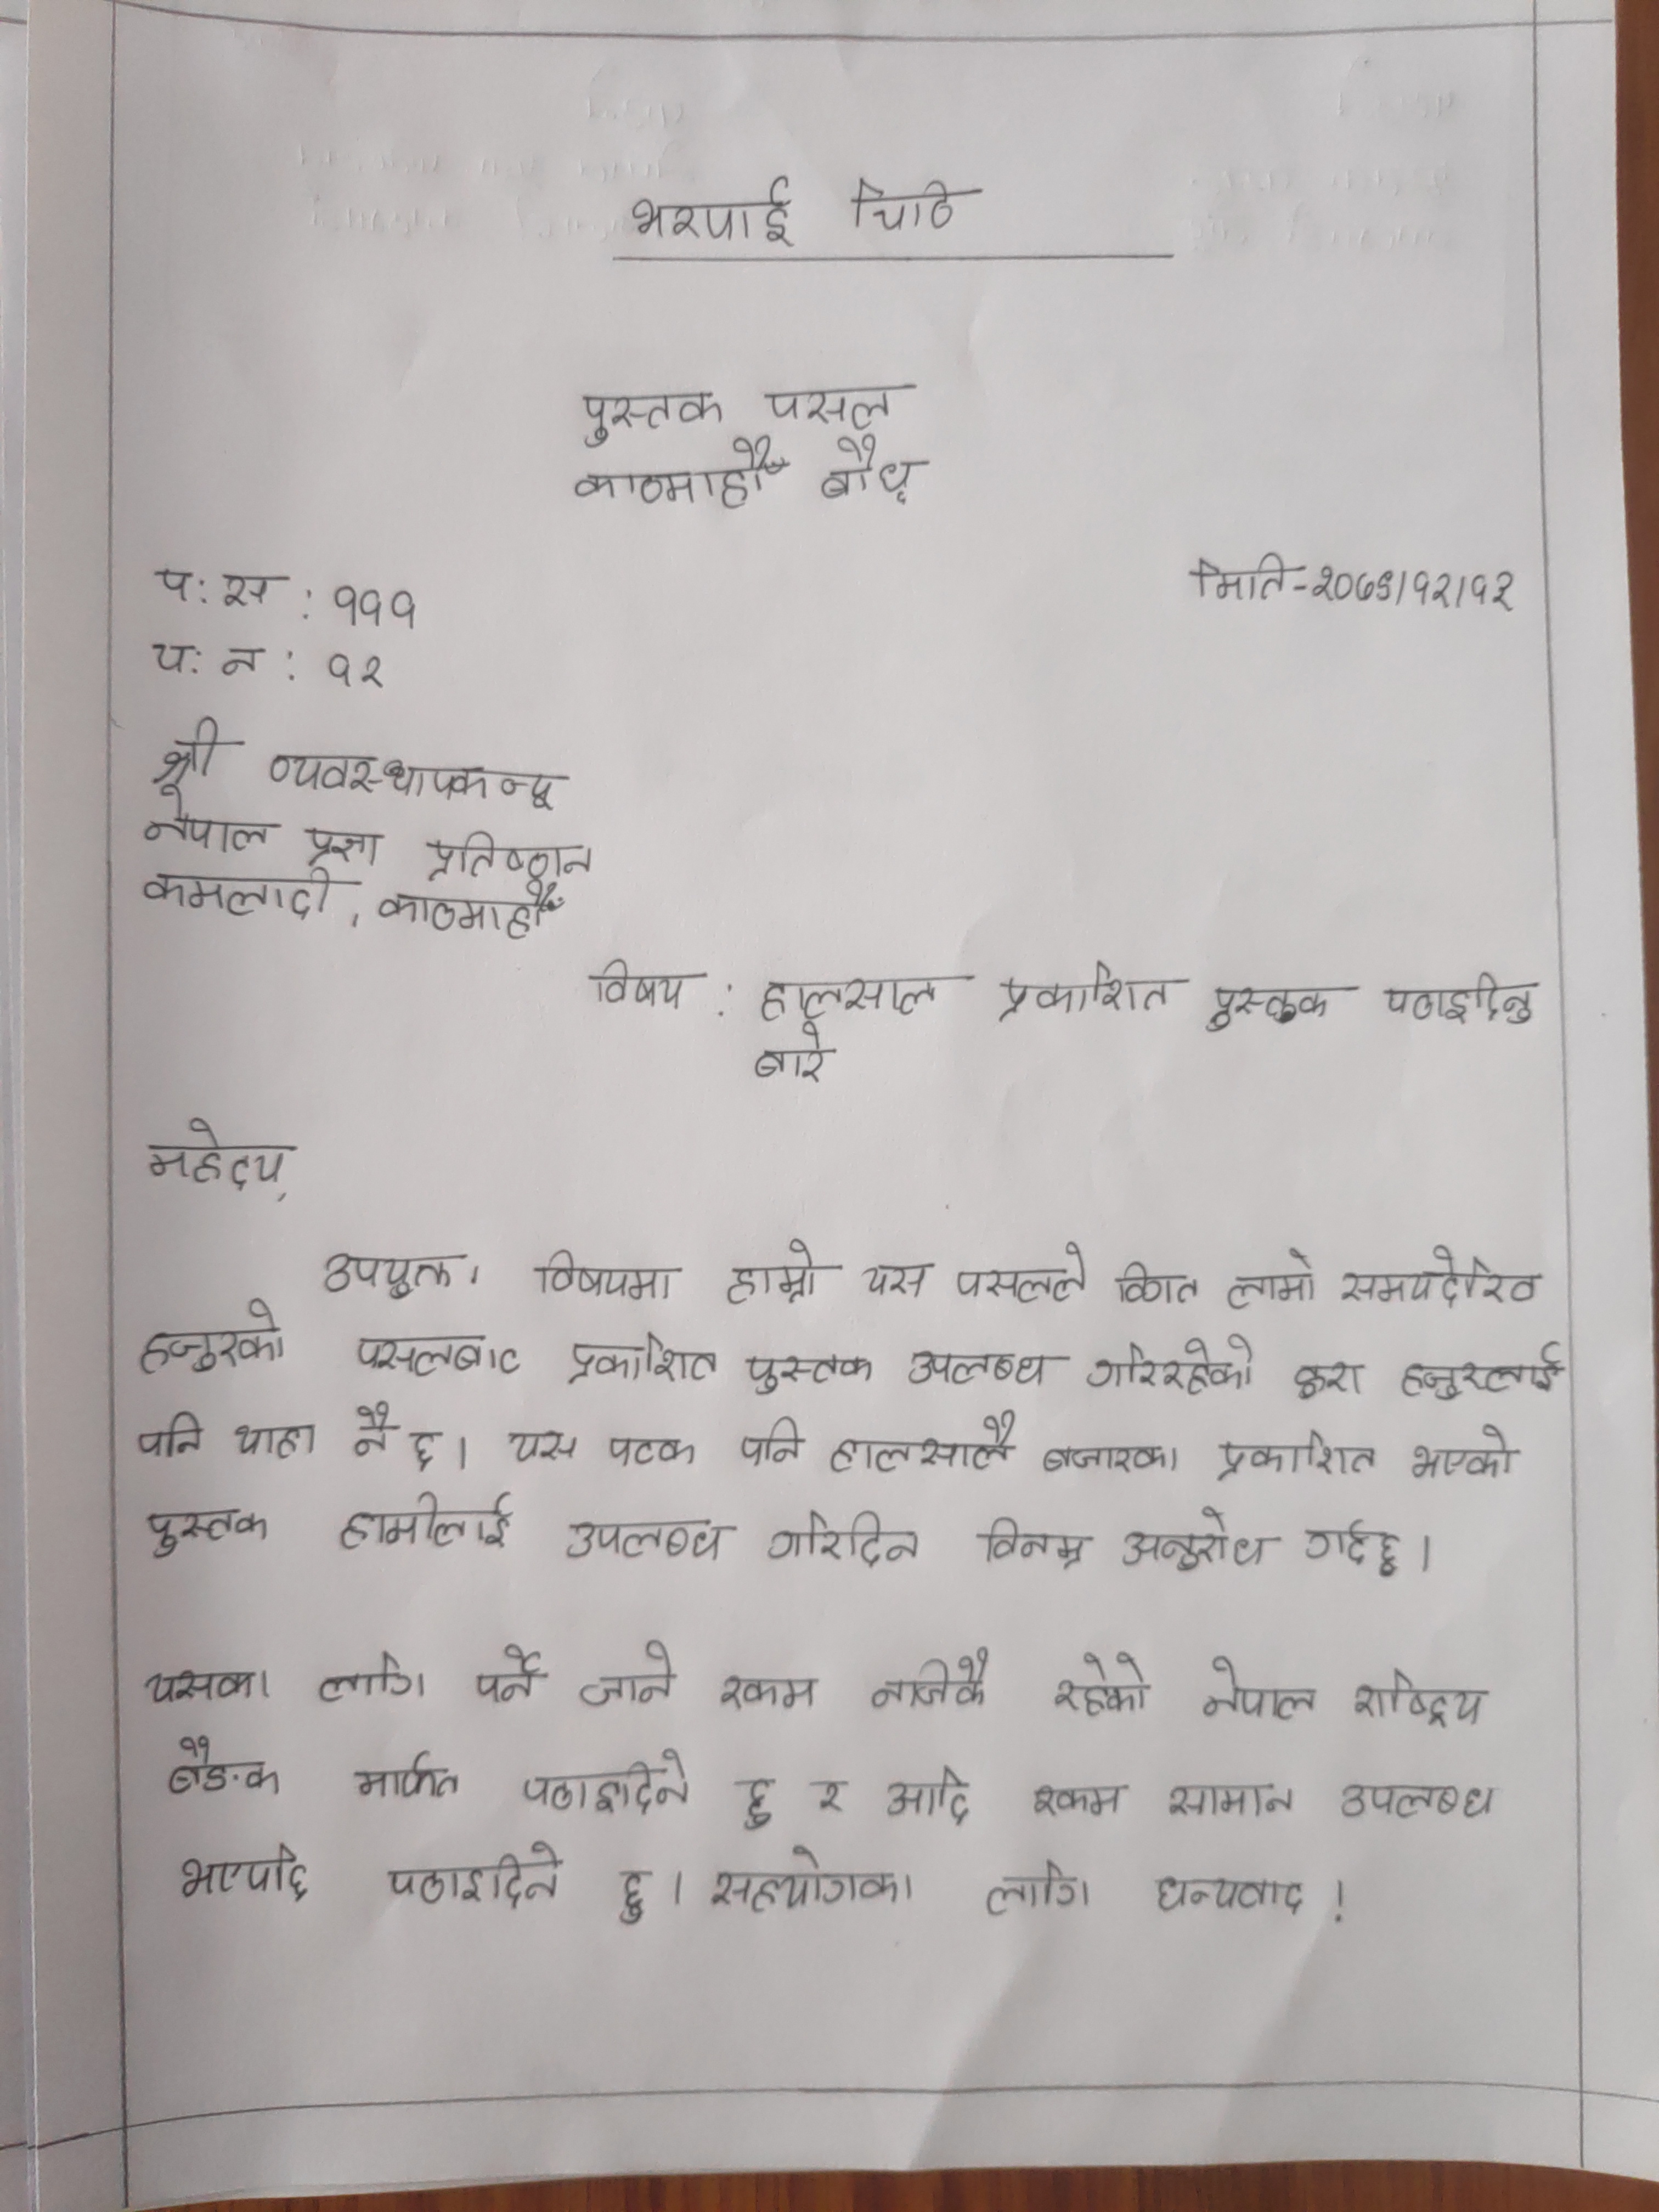 भरपाई चिठि
पुस्तक पसल
काठमाडौँ बौध्
प: स : १११
मिति-२०७९/१२/१२
प: न : १२
श्री व्यवस्थापकज्यू
नेपाल प्रज्ञा प्रतिष्ठान
कमलादी, काठमाडौँ
विषय : हालसाल प्रकाशित पुस्तक पठाइदिनु
बारे
महोदय,
उपयुक्त। विषयमा हाम्रो यस पसलले विगत लामो समयदेखि
हजुरको पसलबाट प्रकाशित पुस्तक उपलब्ध गरिरहेको कुरा हजुरलाई
पनि थाहा नै छ। यस पटक पनि हालसालै बजारका प्रकाशित भएको
पुस्तक हामीलाई उपलब्ध गरिदिन विनम्र अनुरोध गर्दछु।
यसका लागि पर्ने जाने रकम नजिकै रहेको नेपाल राष्ट्रिय
बैङ्क मार्फत पठाइदिने छु र आदि रकम सामान उपलब्ध
भएपछि पठाइदिने छु। सहयोगका लागि धन्यवाद !